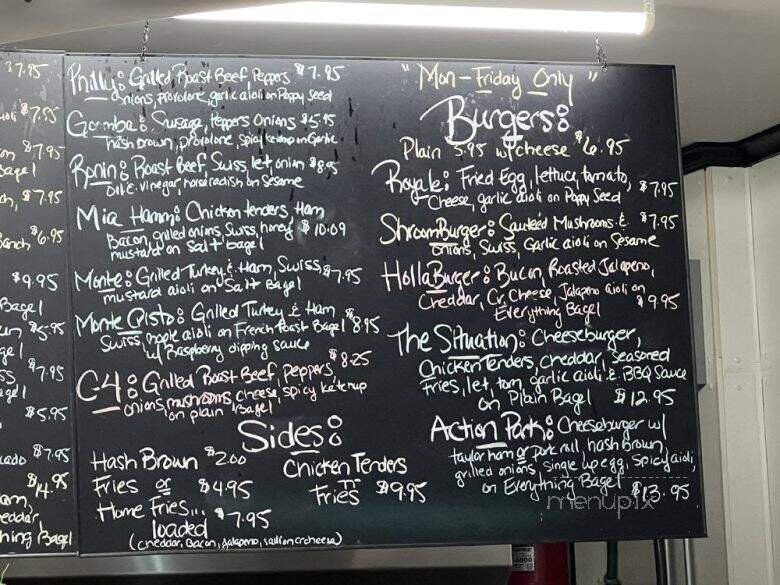 $7.95
$7.95
$7.95
Bagel
$7.95
$6.95
$9.95
Bagel
$5.95
$7.95
$5.95
$7.95
$14.95
Philly: Grilled Roast Beef, Peppers $7.95
onions, provolone, garlic aioli on Poppy Seed
Goomba: Sausage, Peppers Onions $5.95
hash brown, provolone, spicy ketchup on Garlic
Ronin: Roast Beef, Swiss, let onion $8.95
oil & vinegar horseradish on Sesame
Mia Hamm: Chicken tenders, Ham
Bacon, grilled onions, Swiss, honey $10.09
mustard on Salt bagel
Monte: Grilled Turkey & Ham, Swiss, $7.95
mustard aioli on Salt Bagel
Monte Qisto: Grilled Turkey & Ham
Swiss, maple aioli on French Toast Bagel $8.95
w/ Raspberry dipping sauce
C-4: Grilled Roast Beef, Peppers, $8.25
onions, mushrooms, cheese, spicy ketchup
on plain Bagel
Sides:
Hash Brown $2.00
Fries or $4.95
Home Fries...
loaded $7.95
(cheddar, Bacon, jalapeno,
Chicken Tenders
Fries $9.95
"Mon-Friday Only"
Burgers:
Plain 5.95 w/cheese $6.95
Royale: Fried Egg, lettuce, tomato,
Cheese, garlic aioli on Poppy Seed $7.95
ShroomBurger: Sauteed Mushrooms & $7.95
onions, Swiss, Garlic aioli on Sesame
HollaBurger: Bacon, Roasted Jalapeno,
Cheddar, Cr. Cheese, Jalapeno aioli on
Everything Bagel $9.95
The Situation: Cheeseburger,
Chicken Tenders, cheddar, seasoned
fries, let, tom, garlic aioli & BBQ Sauce
on Plain Bagel $12.95
Action Park: Cheeseburger w/
taylor ham or pork roll, hash brown,
grilled onions, single up egg, spicy aioli,
on Everything Bagel $13.95
menupix